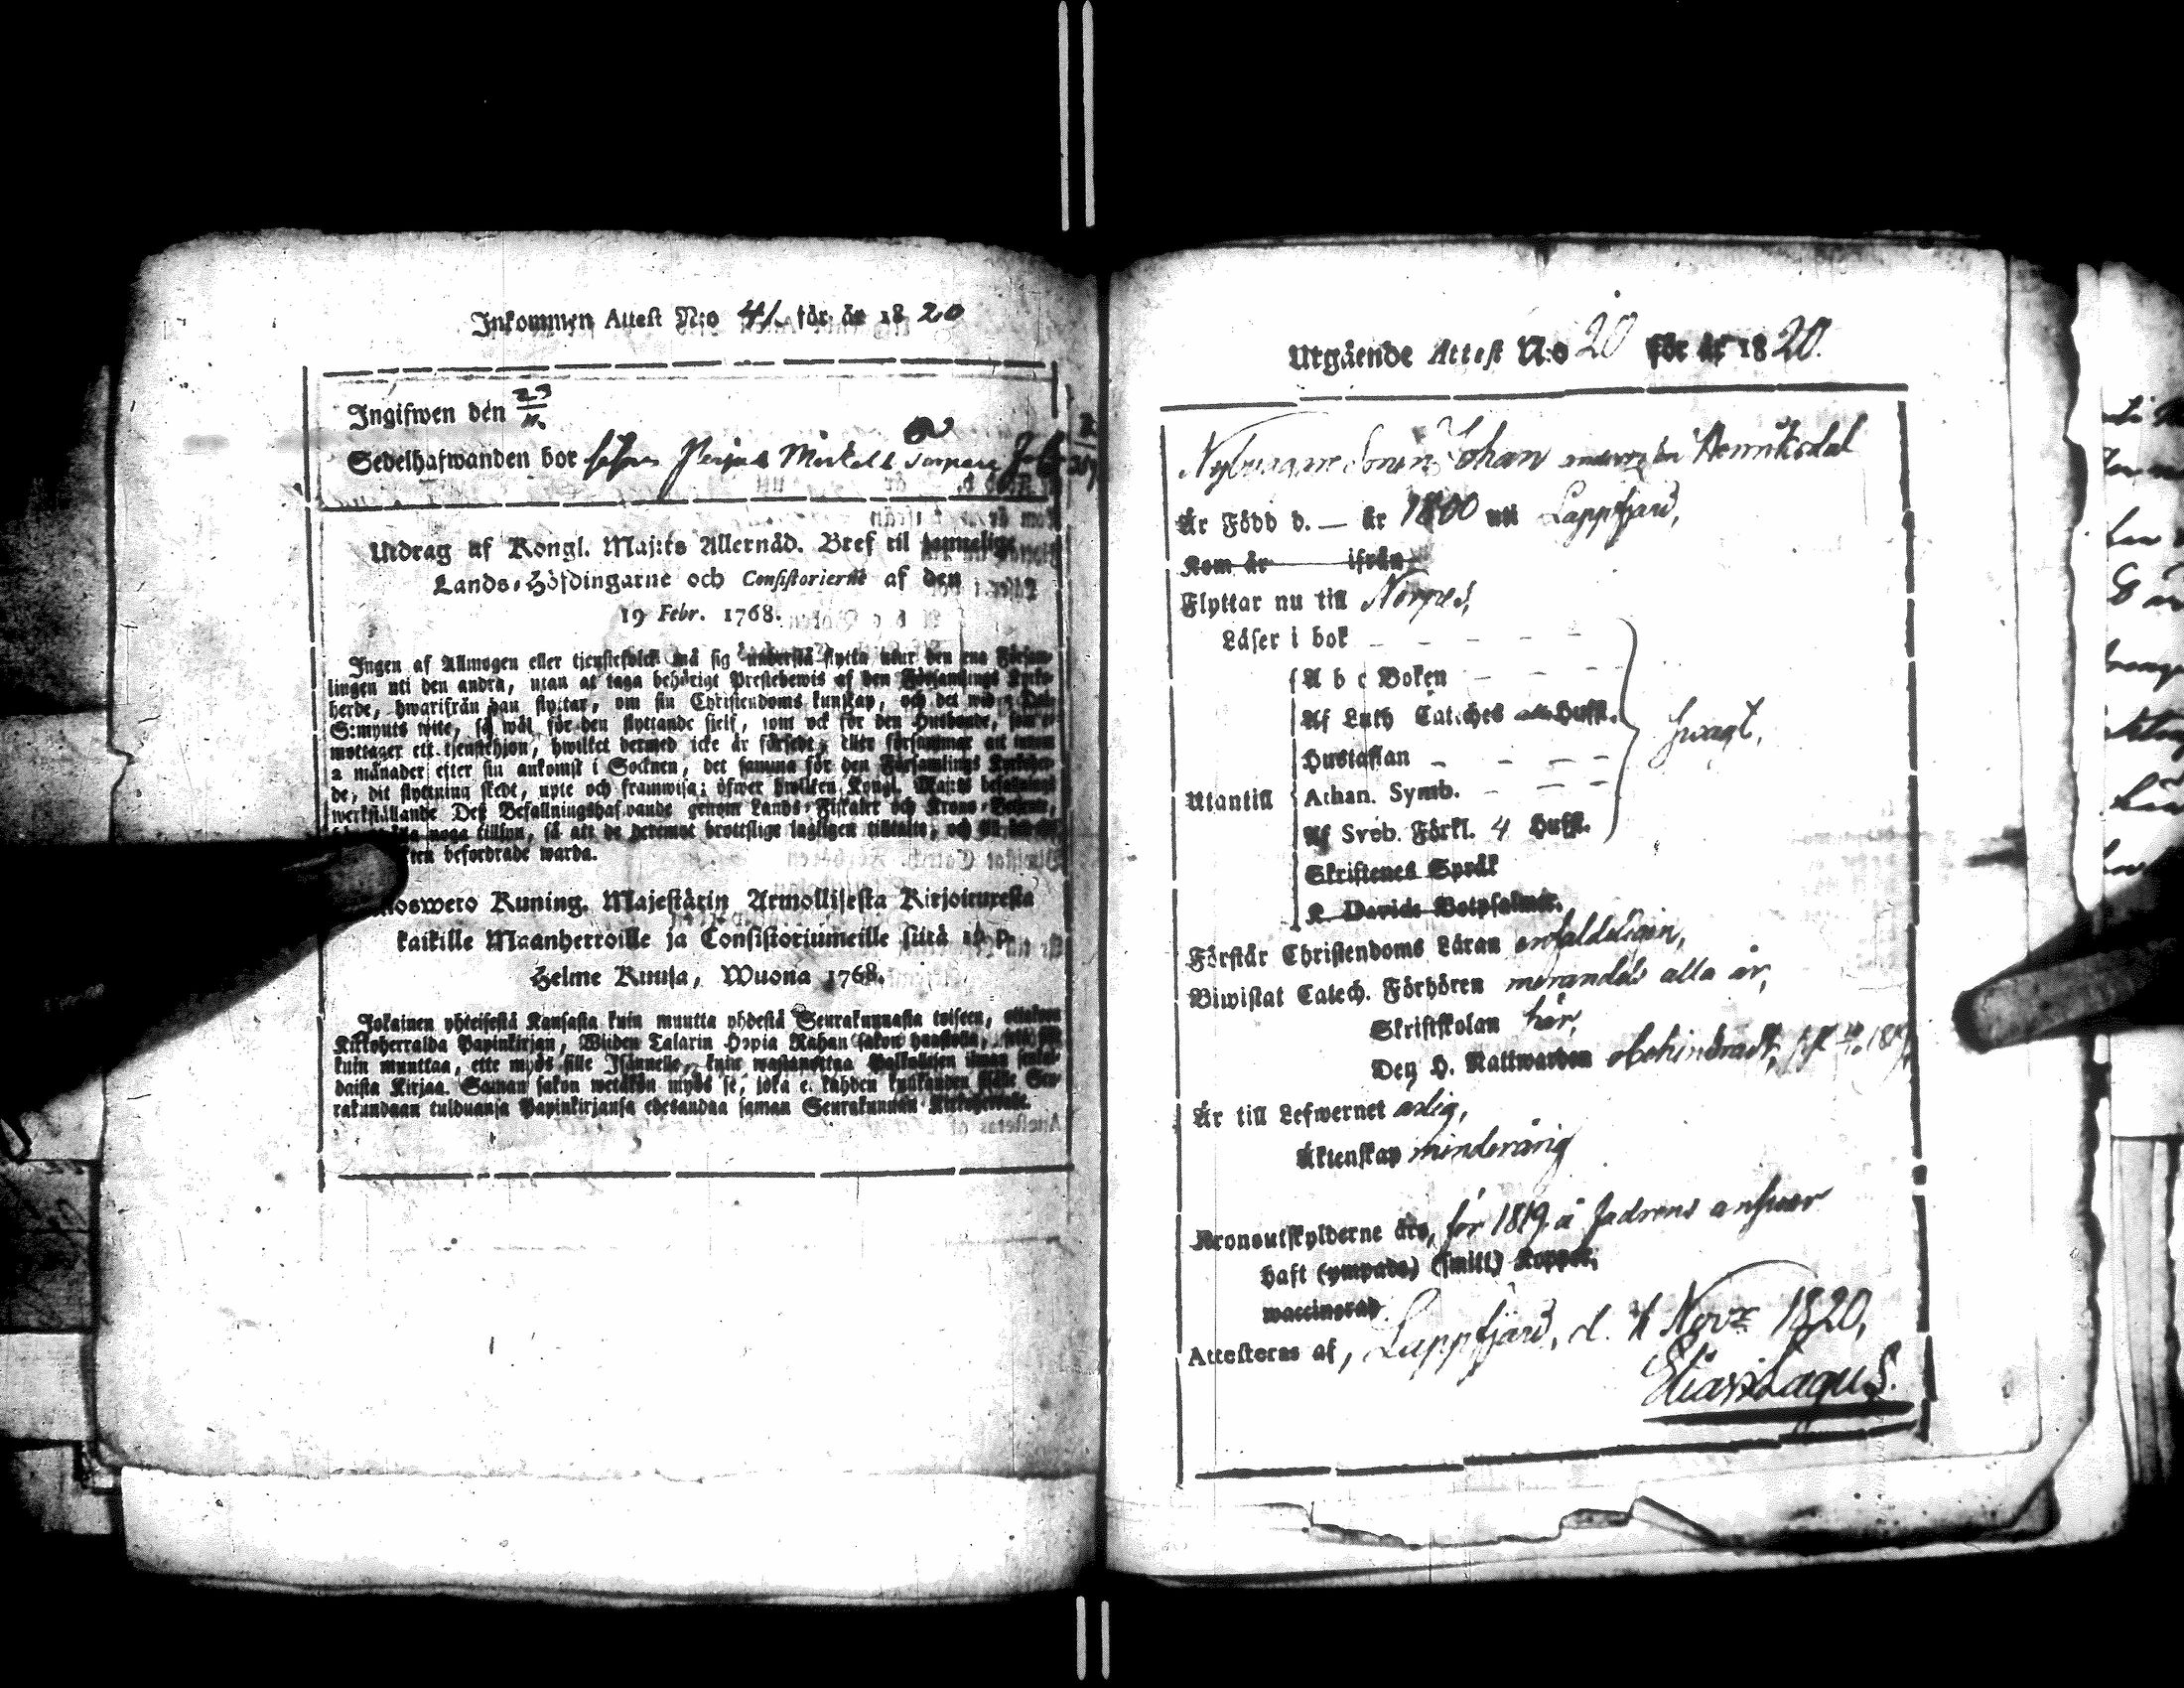 Inkommen Attest N:o 41. för år 1820
Ingifwen den 23/11.
Sedelhafwanden bor hos Mickels
Utdrag af Kongl. Maj:ts Allernåd. Bref til samtelige
Lands-Höfdingarne och Consistorierne af den
19 Febr. 1768.
Ingen af Allmogen eller tjenstefolck må sig understå flytta utur den ena Försam-
lingen uti den andra, utan at taga behörigt Prestebewis af den Församlings Kyrko-
herde, hwarifrån han flyttar, om sin Christendoms kunskap, och det wid 5 Dal.
S:mynts wite, så wäl för den flyttande sielf, som ock för den Husbonde, som e-
mottager ett tjenstehjon, hwilket dermed icke är försedt; eller försummar att inom
2 månader efter sin ankomst i Socknen, det samma för den Församlings Kyrkoher-
de, dit flyttning skedt, upte och framwisa; öfwer hwilken Kongl. Maj:ts befallnings
werkställande Deß Befallningshafwande genom Lands-Fiskaler och Krono-Betjente,
noga tillsyn, så att de deremot brottslige lagligen tilltalte, och till
befordrade warda.
Kuning. Majestätin Armollisesta Kirjoituxesta
kaikille Maanherroille ja Consistoriumeille siitä 19 p.
Helme Kuusa, Wuona 1768.
Jokainen yhteisestä Kansasta kuin muutta yhdestä Seurakunnasta toiseen, ottakoon
Kirkoherralda Papinkirjan, Wiiden Talarin Hopia Rahan sakon haastolla, sekä sille
kuin muuttaa, ette myös sille Isännelle, kuin wastanottaa Palkollisen ilman senkal-
daista Kirjaa. Saman sakon wetäkön myös se, joka ei kahden kuukauden sisälle Seu-
rakundaan tulduansa Papinkirjansa edesandaa saman Seurakunnan Kirkoherralle.
Utgående Attest N:o 20 för år 1820.
Nybyggare Sonen Johan Henriksdal
Är Född d. — år 1800 uti Lappfjerd,
Kom år ifrån
Flyttar nu till Nerpes,
Läser i bok
A b c Boken
Af Luth Catéches alla Hufst.
Hustaflan
Utantill
Athan. Symb.
Af Sveb. Förkl. 4 Hufst.
swagt,
Skriftenes Språk
K. Davids Botpsalmer.
Förstår Christendoms Läran enfaldeligen,
Biwistat Catech. Förhören merendels alla år,
Skriftskolan här,
Deß H. Nattwarden obehindradt, sist 1819,
Är till Lefwernet ärlig,
Äktenskap minderårig
Kronoutskylderne äro, för 1819 å Fadrens answar
haft (ympade) (smitt) Koppor,
waccinerad
Attesteras af, Lappfjerd, d. Nov: 1820,
Elias Lagus.